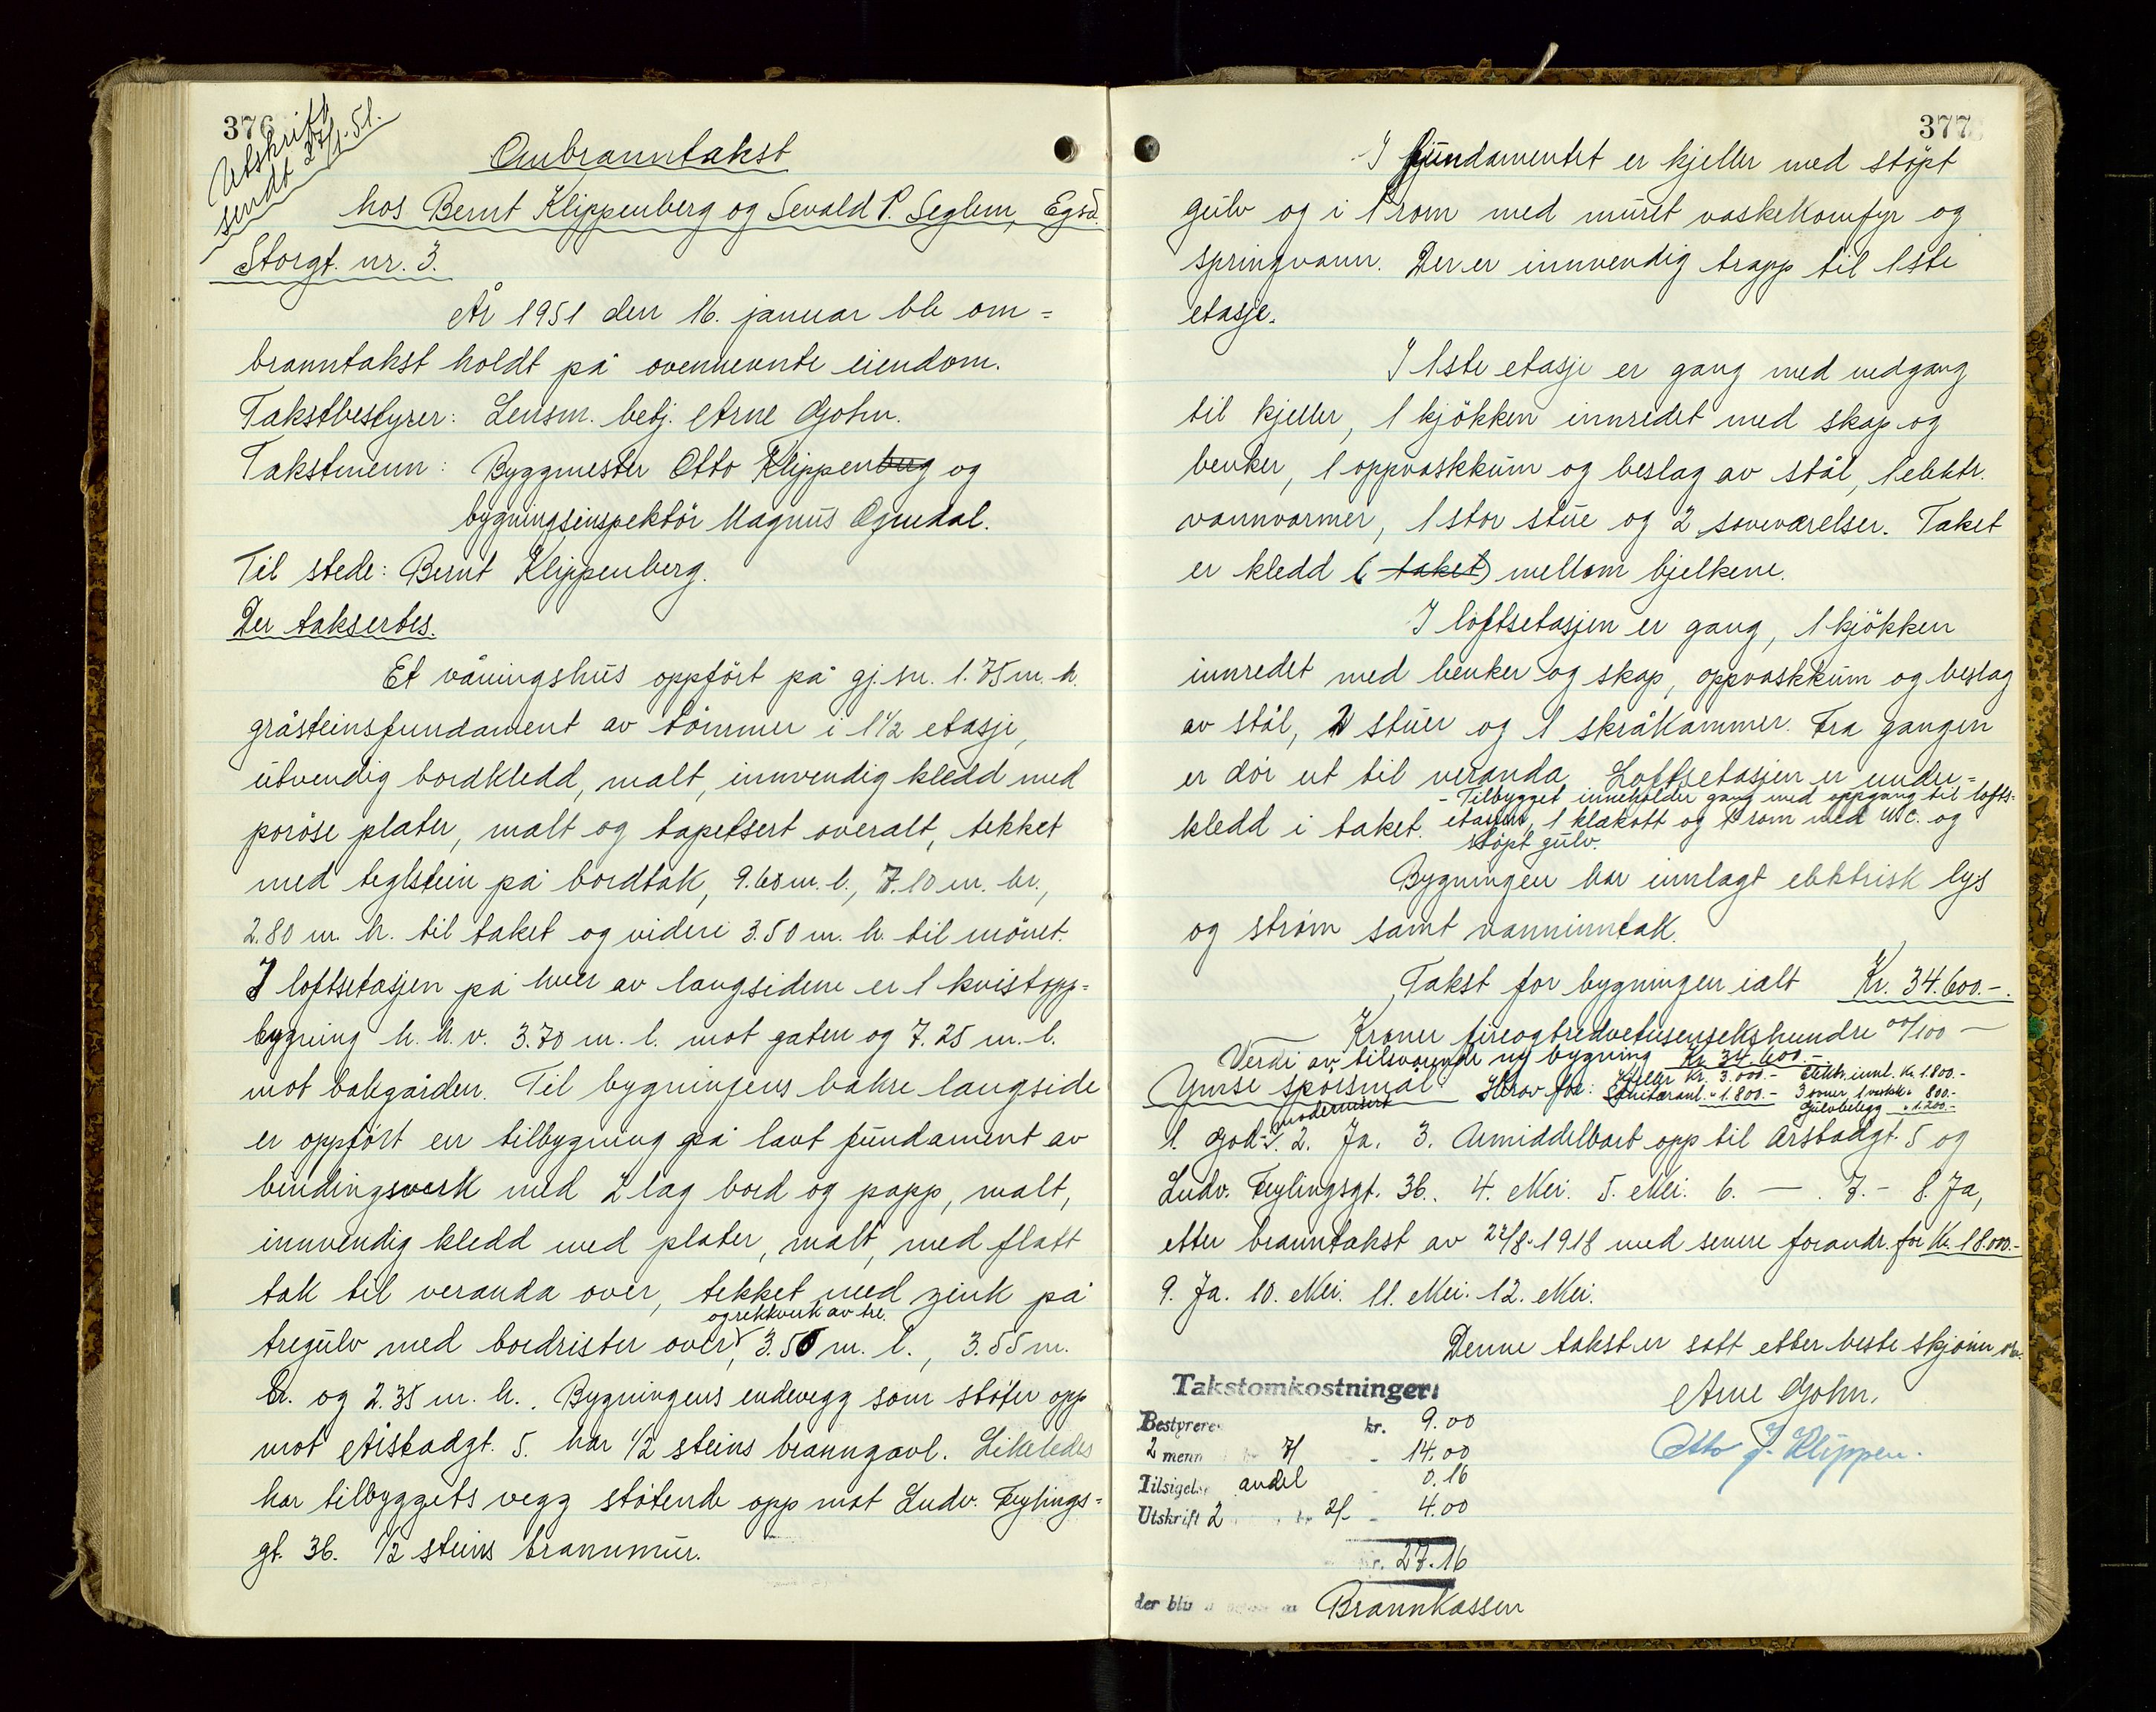 376
Utskrift
sendt 27/1-51.
Ombranntakst
hos Bernt Klippenberg og Sevald P. Seglem, Egsd.
Storgt. nr. 3.
År 1951 den 16. januar ble om=
branntakst holdt på ovennevnte eiendom.
Takstbestyrer: Lensm. betj. Arne Gjohn.
Takstmenn: Byggmester Otto Klippenberg og
bygningsinspektör Magnus Ognedal.
Til stede: Bernt Klippenberg.
Der takserbes.
Et våningshus oppfört på gj.sn. 1.75 m. h.
gråsteinsfundament av tömmer i 1 1/2 etasje,
utvendig bordkledd, malt, innvendig kledd med
poröse plater, malt og tapetsert overalt, tekket
med teglstein på bordtak, 9.60 m. l., 7.10 m. br.,
2.80 m. h. til taket og videre 3.50 m. h. til mönet.
I loftsetasjen på hver av langsidene er 1 kvistopp=
bygning h.h.v. 3.70 m. l. mot gaten og 7.25 m. l.
mot bakgården. Til bygningens bakre langside
er oppfört en tilbygning på lavt fundament av
bindingsverk med 2 lag bord og papp, malt,
innvendig kledd med plater, malt, med flatt
tak til veranda over, tekket med zink på
og rekkverk av tre.
tregulv med bordrister over, 3.50 m. l., 3.55 m.
br. og 2.35 m. h.. Bygningens endevegg som stöter opp
mot Årstadgt. 5. har 1/2 steins branngavl. Likeledes
har tilbyggets vegg stötende opp mot Ludv. Feylings=
gt. 36. 1/2 steins brannmur.
377
I fundamentet er kjeller med stöpt
gulv og i 1 rom med muret vaskekomfyr og
springvann. Der er innvendig trapp til 1ste
etasje.
I 1ste etasje er gang med nedgang
til kjeller, 1 kjökken innredet med skap og
benker, 1 oppvaskkum og beslag av stål, 1 elektr.
vannvarmer, 1 stor stue og 2 soveværelser. Taket
er kledd (taket) mellom bjelkene.
I loftsetasjen er gang, 1 kjökken
innredet med benker og skap, oppvaskkum og beslag
av stål, 2 stuer og 1 skråkammer. Fra gangen
er dör ut til veranda. Loftsetasjen er under=
- Tilbygget inneholder gang med oppgang til lofts=
kledd i taket. etasjen, 1 klakott og 1 rom med W.C. og
stöpt gulv.
Bygningen har innlagt elektrisk lys
og ström samt vanninntak.
Takst for bygningen ialt Kr. 34.600.-.
Kroner fireogtredvetusenseks hundre 00/100 —
Verdi av tilsvarende ny bygning Kr. 34.600.-
Ymse spörsmål Herav for: Kjeller Kr. 3.000.- Elektr. innl. Kr. 1.800.-
Sanitæranl. " 1.800.- 3 ovner 1 vaskk. " 800.-
Gulvbelegg " 1.200.-
modernisert
1. God- 2. Ja. 3. Umiddelbart opp til Årstadgt. 5 og
Ludv. Feylingsgt. 36.. 4. Nei. 5. Nei. 6. — . 7. - 8. Ja,
etter branntakst av 22/8-1918 med senere forandr. for Kr. 18.000.-
9. Ja. 10. Nei. 11. Nei. 12. Nei.
Denne takst er satt etter beste skjönn
Arne Gjohn.
Otto J. Klippen.
Takstomkostninger:
Bestyreren kr. 9.00
2 menn 7/ - 14.00
Tilsigelse andel - 0.16
Utskrift 2 2/- - 4.00
kr. 27.16
der blir Brannkassen